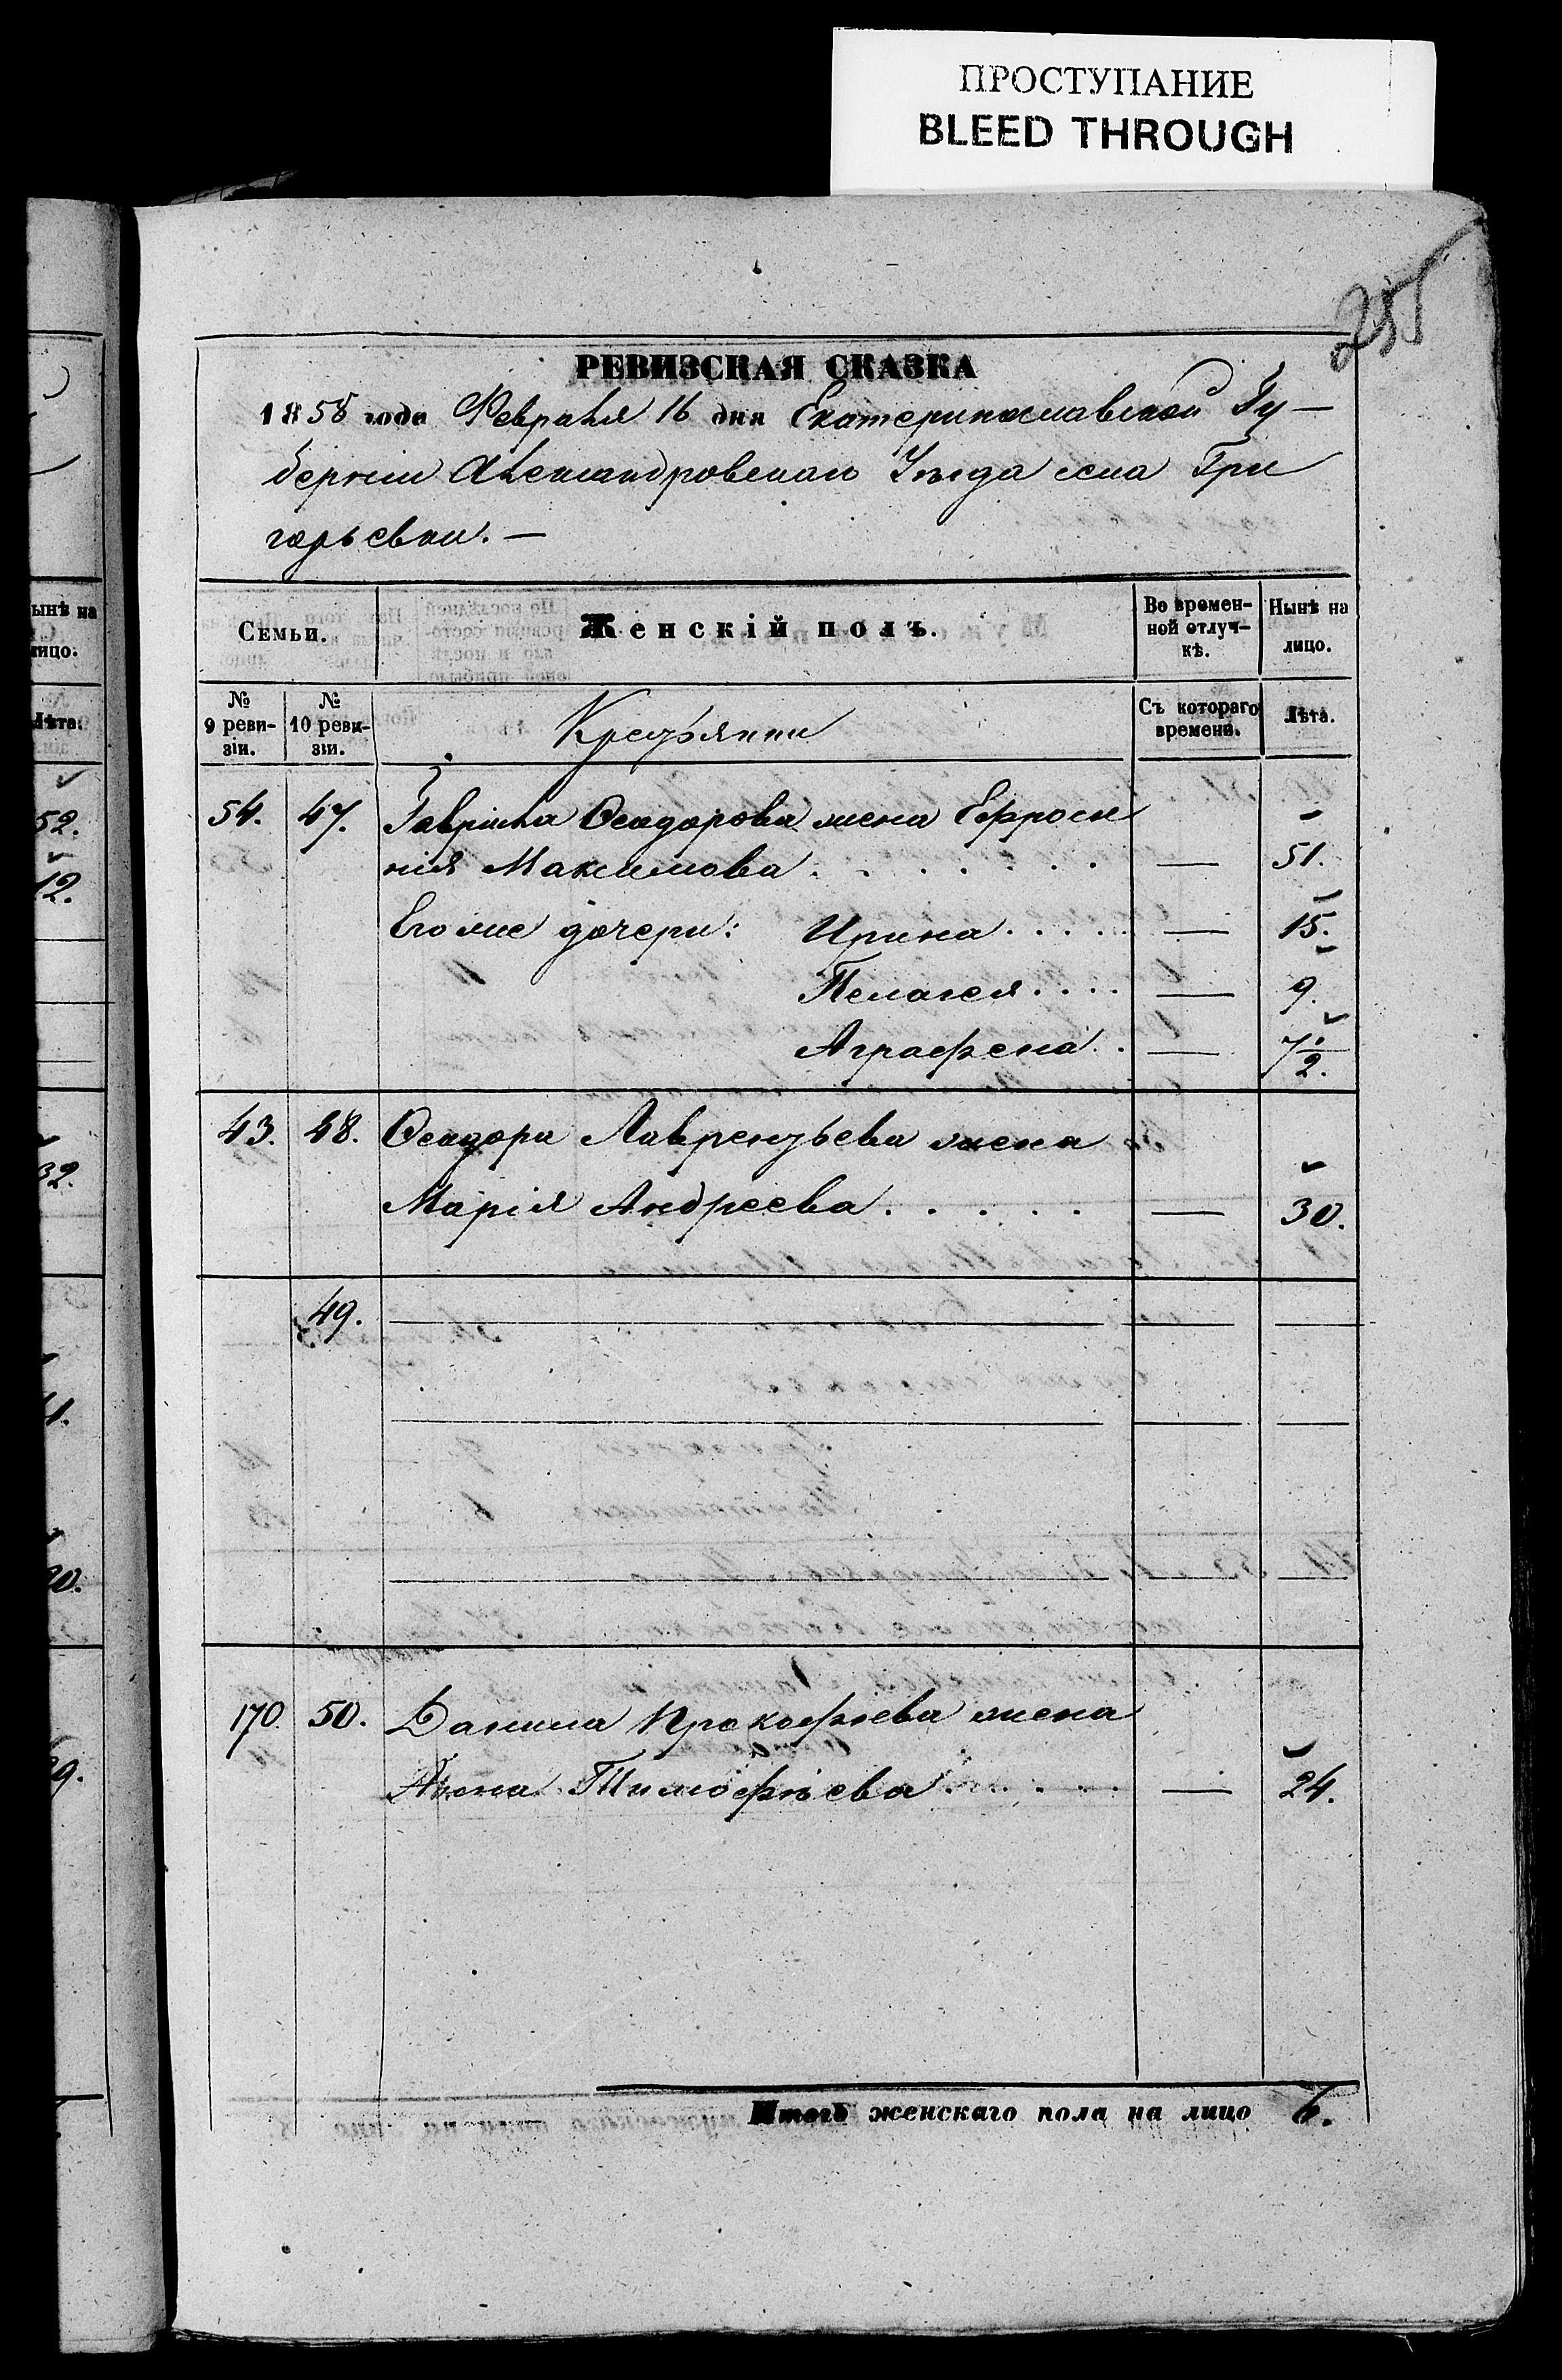 ПРОСТУПАНИЕ
BLEED THROUGH
255
РЕВИЗСКАЯ СКАЗКА
1858 года Февраля 16 дня Екатеринославской Гу-
берніи Александровскаго Уѣзда села Гри
горьевки. —
Семьи. Женскій полъ. Во времен-ной отлуч-кѣ. Нынѣ на лицо.
№ 9 реви-зіи. № 10 реви-зіи. Крестьянки Съ котораго времени. Лѣта.
54. 47. Гаврила Ѳеодорова жена Ефроси
нія Максимова . . . . . . — 51.
Его же дочери: Ирина . . . . — 15.
Пелагея . . . . — 9.
Аграфена . . — 7½.
43. 48. Ѳеодора Лаврентьева жена
Марія Андреева . . . . . — 30.
49. — — —
170. 50. Данила Прокофьева жена
Анна Тимофѣева . . . . . — 24.
Итогъ женскаго пола на лицо 6.
ынѣ на
лицо.
Лѣта.
52.
12.
32.
1.
20.
9.